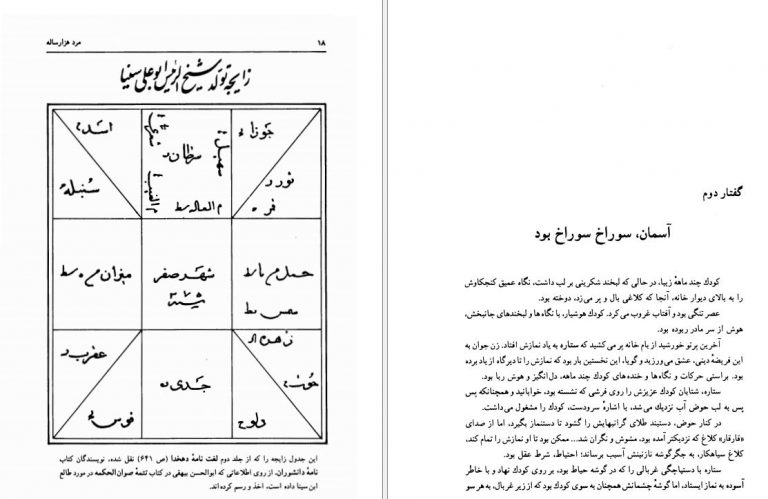 ۱۸
مرد هزارساله
زایجه تولد شیخ الرئیس ابوعلی سینا
اسد
سنبله
سرطان
سهیل
شعری
جوزاء
ثور
حمل
میزان
شهر صفر
عقرب
قوس
جدی
دلو
حوت
این جدول زایجه را که از جلد دوم لغت نامهٔ دهخدا (ص ۶۴۱) نقل شده، نویسندگان کتاب
نامهٔ دانشوران، از روی اطلاعاتی که ابوالحسن بیهقی در کتاب تتمه صوان‌الحکمه در مورد طالع
ابن سینا داده است، اخذ و رسم کرده‌اند.
گفتار دوم
آسمان، سوراخ سوراخ بود
کودك چند ماههٔ زیبا، در حالی که لبخند شکرینی بر لب داشت، نگاه عمیق کنجکاوش
را به بالای دیوار خانه، آنجا که کلاغی بال و پر می‌زد، دوخته بود.
عصر تنگی بود و آفتاب غروب می‌کرد. کودك هوشیار، با نگاه‌ها و لبخندهای جانبخش،
هوش از سر مادر ربوده بود.
آخرین پرتو خورشید از بام خانه پر می‌کشید که ستاره به یاد نمازش افتاد. زن جوان به
این فریضهٔ دینی، عشق می‌ورزید و گویا، این نخستین بار بود که نمازش را تا دیرگاه از یاد برده
بود. براستی حرکات و نگاه‌ها و خنده‌های کودك چند ماهه، دل‌انگیز و هوش ربا بود.
ستاره، شتابان کودك عزیزش را روی فرشی که نشسته بود، خوابانید و همچنانکه پس
پس به لب حوض آب نزدیك می‌شد، با اشارهٔ سرودست، کودك را مشغول می‌داشت.
در کنار حوض، دستبند طلای گرانبهایش را گشود تا دستنماز بگیرد، اما از صدای
«قارقار» کلاغ که نزدیکتر آمده بود، مشوش و نگران شد... ممکن بود تا او نمازش را تمام کند،
کلاغ سیاهکار، به جگرگوشه نازنینش آسیب برساند؛ احتیاط، شرط عقل بود.
ستاره با دستپاچگی غربالی را که در گوشه حیاط بود، بر روی کودك نهاد و با خاطر
آسوده به نماز ایستاد، اما گوشهٔ چشمانش همچنان به سوی کودك بود که از زیر غربال، به هر سو